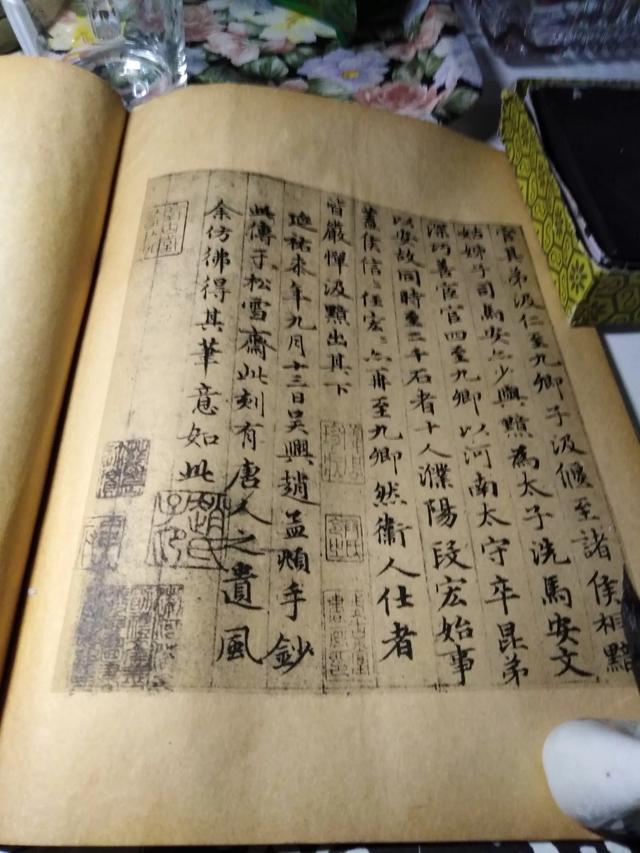 官其弟汲仁至九卿子汲偃至諸侯相黯
姑姊子司馬安亦少與黯為太子洗馬安文
深巧善宦官四至九卿以河南太守卒昆弟
以安故同時至二千石者十人濮陽段宏始事
蓋侯信信任宏宏亦再至九卿然衞人仕者
皆嚴憚汲黯出其下
延祐柒年九月十三日吳興趙孟頫手鈔
此傳于松雪齋此刻有唐人之遺風
余仿彿得其筆意如此
趙氏子昂